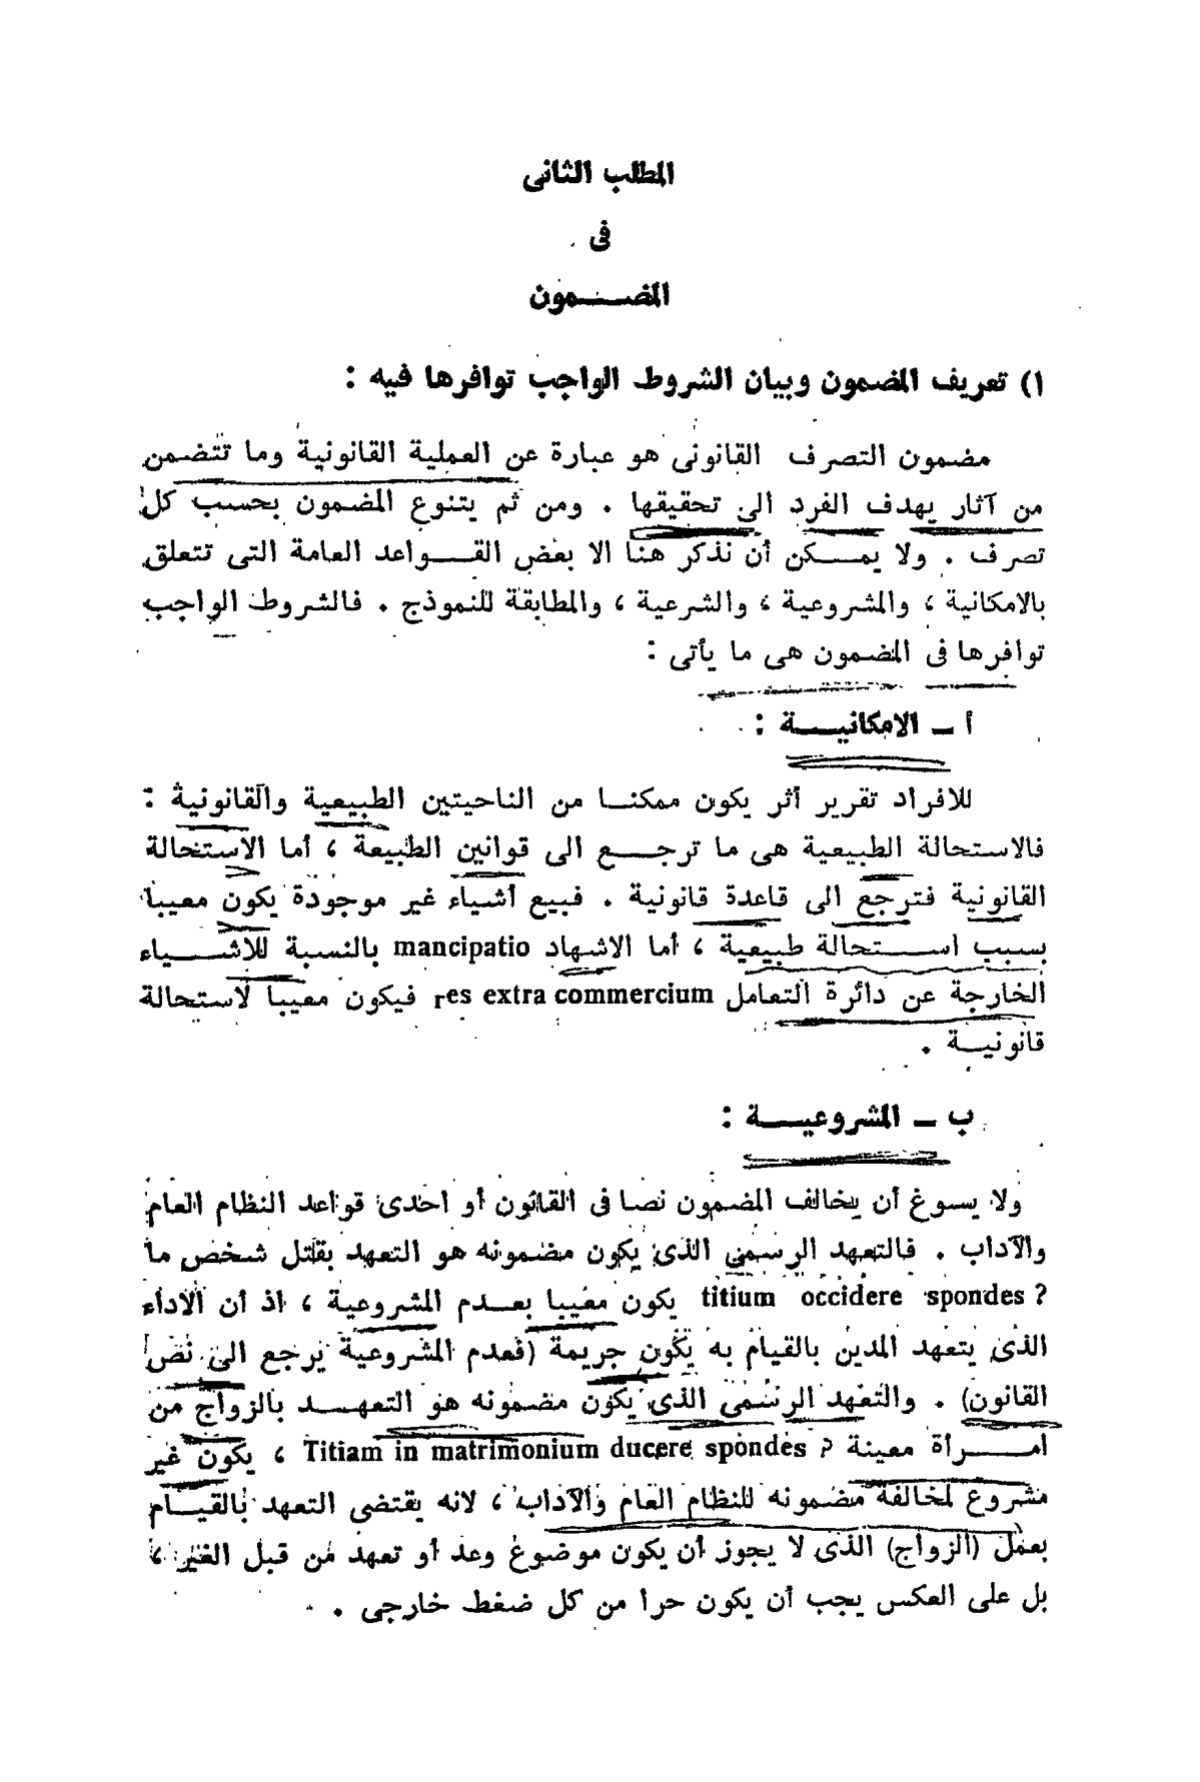 المطلب الثانى
فى
المضمون
١) تعريف المضمون وبيان الشروط الواجب توافرها فيه :
مضمون التصرف القانونى هو عبارة عن العملية القانونية وما تتضمن
من آثار يهدف الفرد الى تحقيقها . ومن ثم يتنوع المضمون بحسب كل
تصرف . ولا يمكن أن نذكر هنا الا بعض القواعد العامة التى تتعلق
بالامكانية ، والمشروعية ، والشرعية ، والمطابقة للنموذج . فالشروط الواجب
توافرها فى المضمون هى ما يأتى :
أ – الامكانية :
للافراد تقرير أثر يكون ممكنا من الناحيتين الطبيعية والقانونية :
فالاستحالة الطبيعية هى ما ترجع الى قوانين الطبيعة ، أما الاستحالة
القانونية فترجع الى قاعدة قانونية . فبيع أشياء غير موجودة يكون معيبا
بسبب استحالة طبيعية ، أما الاشهاد mancipatio بالنسبة للاشياء
الخارجة عن دائرة التعامل res extra commercium فيكون معيبا لاستحالة
قانونية .
ب – المشروعية :
ولا يسوغ أن يخالف المضمون نصا فى القانون أو احدى قواعد النظام العام
والآداب . فالتعهد الرسمى الذى يكون مضمونه هو التعهد بقتل شخص ما
titium occidere spondes ? يكون معيبا بعدم المشروعية ، اذ أن الاداء
الذى يتعهد المدين بالقيام به يكون جريمة (فعدم المشروعية يرجع الى نص
القانون) . والتعهد الرسمى الذى يكون مضمونه هو التعهد بالزواج من
امرأة معينة Titiam in matrimonium ducere spondes ? ، يكون غير
مشروع لمخالفة مضمونه للنظام العام والآداب ، لانه يقتضى التعهد بالقيام
بعمل (الزواج) الذى لا يجوز أن يكون موضوع وعد أو تعهد من قبل الغير ،
بل على العكس يجب أن يكون حرا من كل ضغط خارجى .